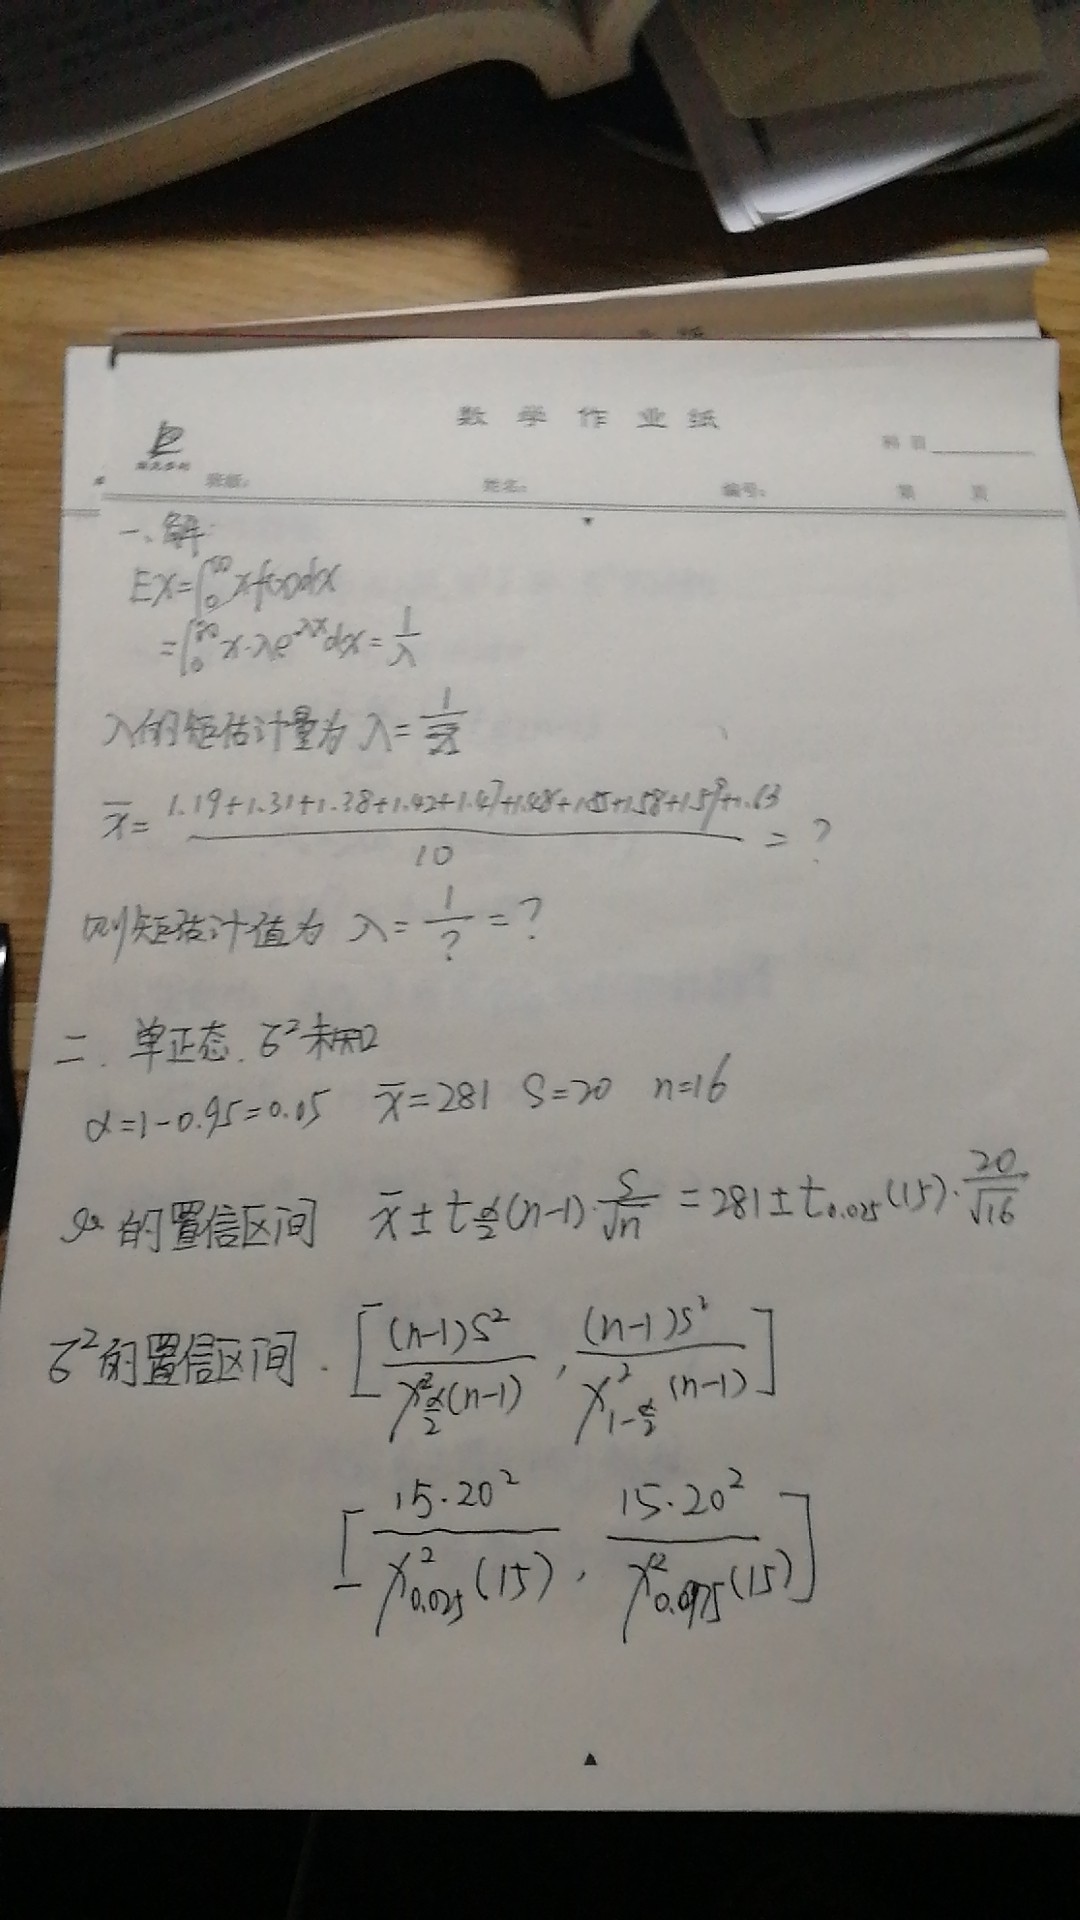 数学作业纸
科目
班级:
姓名:
编号:
第 页
一、解:
EX=∫₀^∞ xf(x)dx
=∫₀^∞ x·λe^{-λx}dx=1/λ
λ的矩估计量为 λ=1/x̄
x̄=(1.19+1.31+1.38+1.42+1.47+1.48+1.55+1.58+1.59+1.63)/10=?
则矩估计值为 λ=1/?=?
二. 单正态. σ²未知
α=1-0.95=0.05 x̄=281 S=20 n=16
μ的置信区间 x̄±t_{α/2}(n-1)·S/√n=281±t_{0.025}(15)·20/√16
σ²的置信区间. [(n-1)S²/χ²_{α/2}(n-1), (n-1)S²/χ²_{1-α/2}(n-1)]
[15·20²/χ²_{0.025}(15), 15·20²/χ²_{0.0975}(15)]